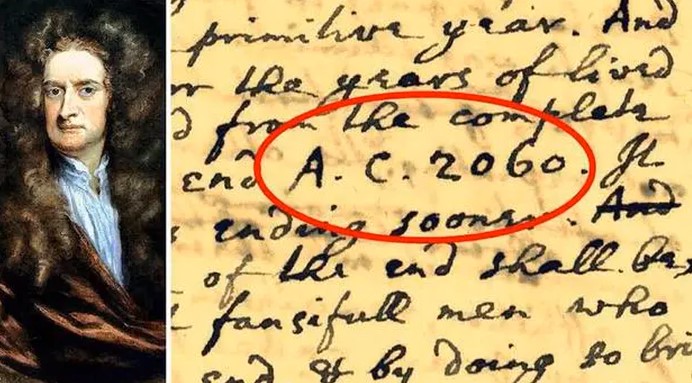 primitive year. And
r the years of lived
d from the compleat
end A. C. 2060. It
s ending sooner. And
of the end shall be,
fansifull men who
end & by doing so bri